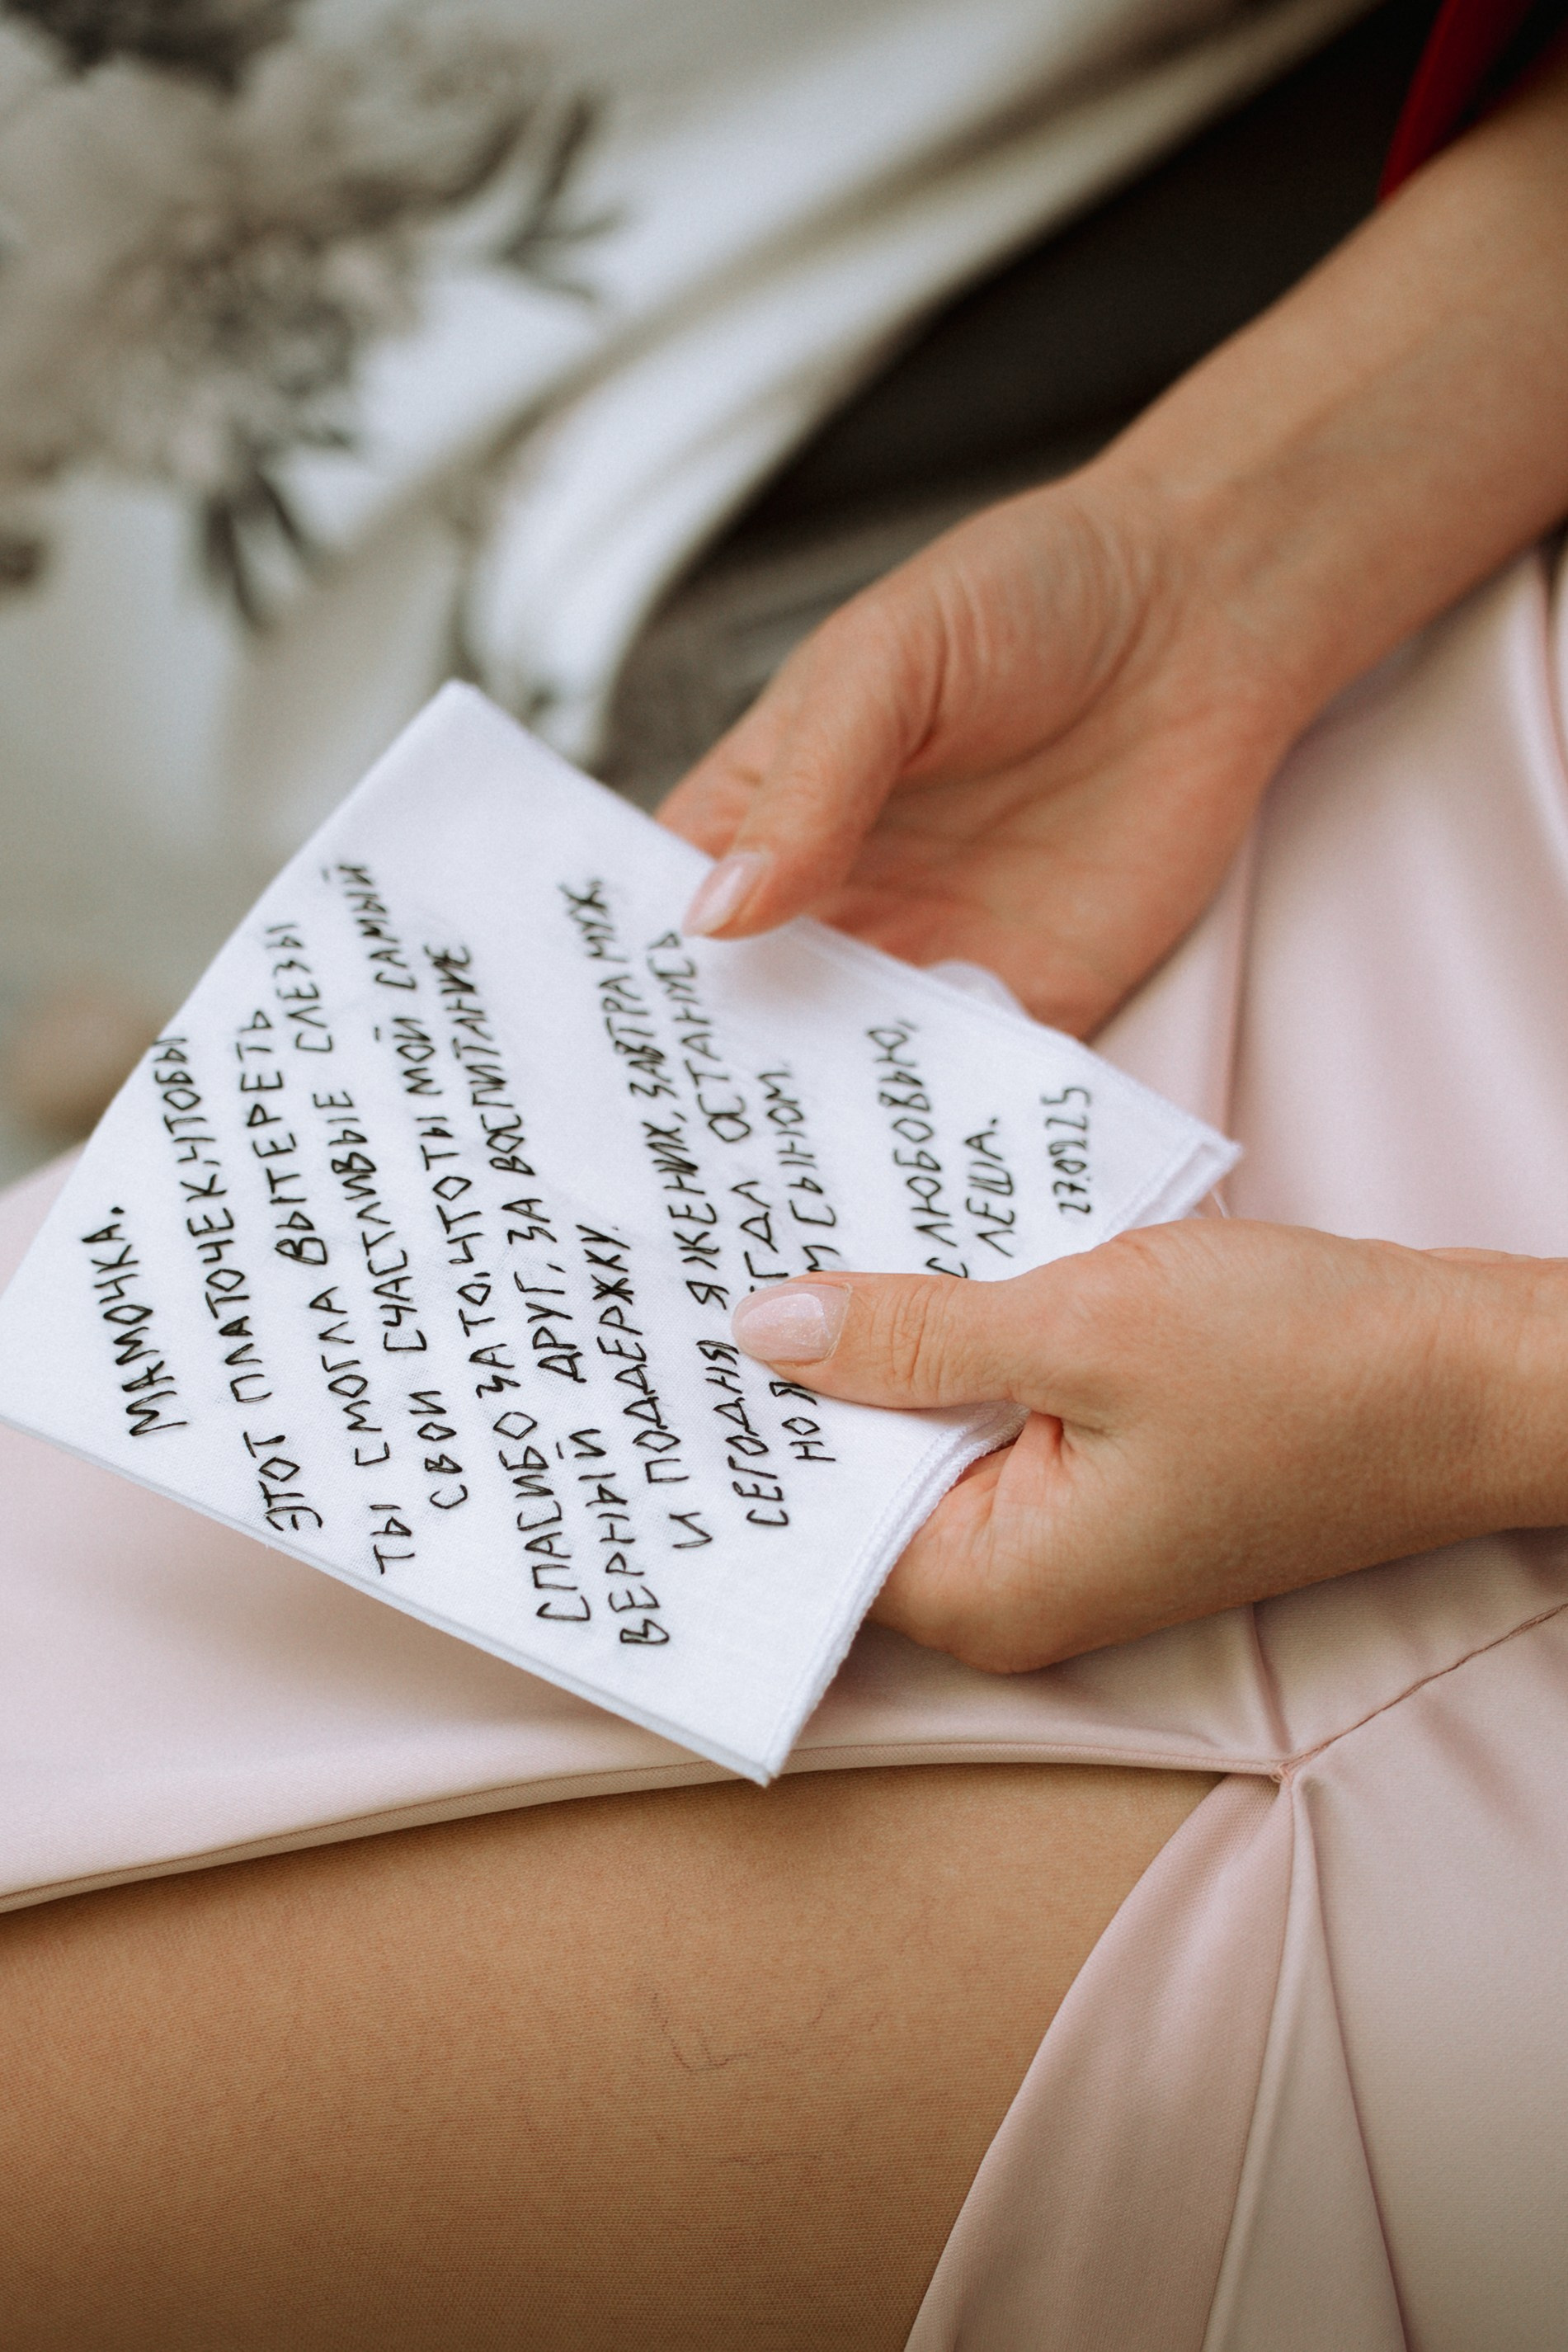 МАМОЧКА,
ЭТОТ ПЛАТОЧЕК, ЧТОБЫ
ТЫ СМОГЛА ВЫТЕРЕТЬ
СВОИ СЧАСТЛИВЫЕ СЛЕЗЫ
СПАСИБО ЗА ТО, ЧТО ТЫ МОЙ САМЫЙ
ВЕРНЫЙ ДРУГ, ЗА ВОСПИТАНИЕ
И ПОДДЕРЖКУ.
СЕГОДНЯ Я ЖЕНИХ, ЗАВТРА МУЖ,
НО Я ОСТАНУСЬ
СЫНОМ.
С ЛЮБОВЬЮ,
ЛЕША.
27.09.25